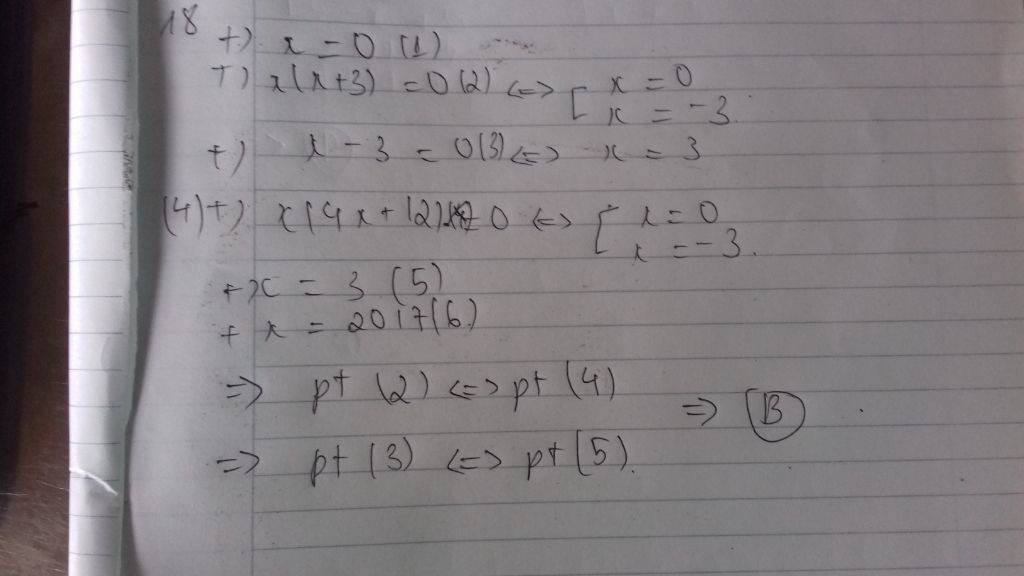 18
+) x = 0 (1)
+) x(x+3) = 0 (2) <=> [ x = 0
x = -3.
+) x - 3 = 0 (3) <=> x = 3
(4) +) x(4x+12) = 0 <=> [ x = 0
x = -3.
+ x = 3 (5)
+ x = 2017 (6)
=> pt (2) <=> pt (4)
=> B
=> pt (3) <=> pt (5).